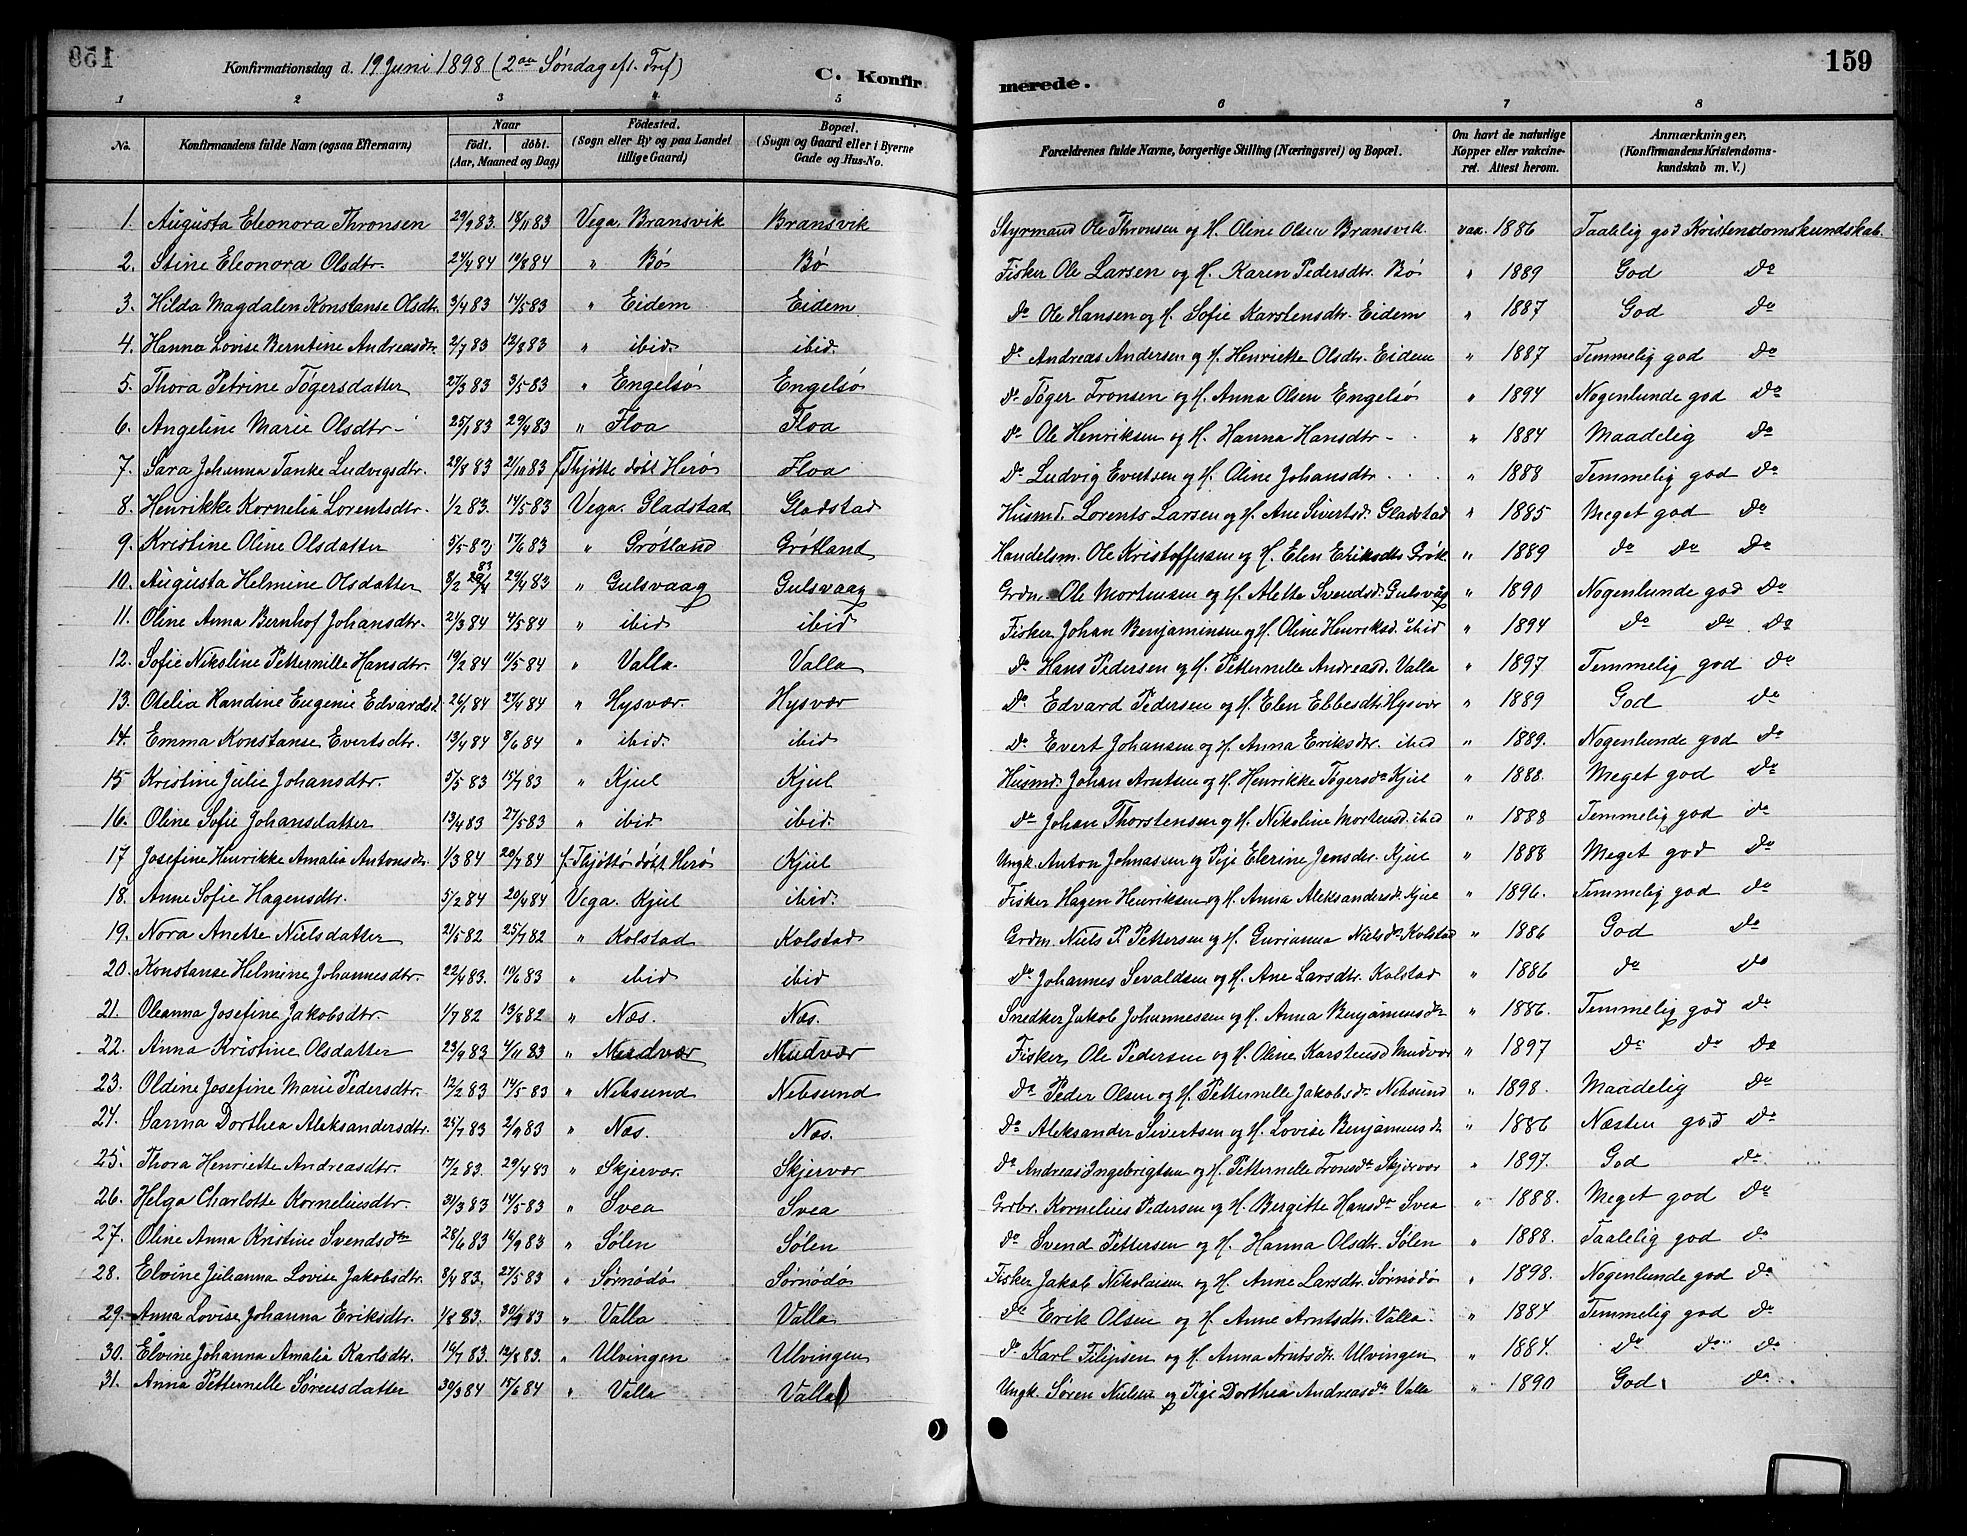 159
Konfirmationsdag d. 19 Juni 1898 (2den Søndag eft. Tref)
C. Konfirmerede.
159
1 2 3 4 5 6 7 8
No. Konfirmandens fulde Navn (ogsaa Efternavn) Naar født. døbt. (Aar, Maaned og Dag) Fødested. (Sogn eller By og paa Landet tillige Gaard) Bopæl. (Sogn og Gaard eller i Byerne Gade og Hus-No. Forældrenes fulde Navne, borgerlige Stilling (Næringsvei) og Bopæl. Om havt de naturlige Kopper eller vakcineret. Attest herom. Anmærkninger, (Konfirmandens Kristendomskundskab m. V.)
1. Augusta Eleonora Thronsen 29/9 83. 18/11 83 Vega Bransvik Bransvik Styrmand Ole Thronsen og H. Oline Olsen Bransvik vac. 1886 Taalelig god Kristendomskundskab.
2. Stine Eleonora Olsdtr. 24/4 84 19/8 84 " Bø Bø Fisker Ole Larsen og H. Karen Pedersdtr. Bø " 1889 God do
3. Hilda Magdalen Konstanse Olsdtr. 3/4 83 14/5 83 " Eidem Eidem do Ole Hansen og H. Sofie Karstensdtr. Eidem " 1887 God do
4. Hanna Lovise Berntine Andreasdtr. 2/7 83 12/8 83 " ibid. ibid. do Andreas Andersen og H. Henriette Olsdtr. Eidem " 1887 Temmelig god do
5. Thora Petrine Tøgersdatter 27/3 83 3/5 83 " Engelsø Engelsø do Tøger Tronsen og H. Anna Olsen Engelsø " 1894 Nogenlunde god do
6. Angeline Marie Olsdtr. 25/1 83 29/4 83 " Floa Floa do Ole Henriksen og H. Hanna Hansdtr - " 1884 Maadelig do
7. Sara Johanna Tanke Ludvigsdtr. 29/8 83 2/10 83 f Thjøtte døbt Herø Floa do Ludvig Evertsen og H. Oline Johansdtr " 1888 Temmelig god do
8. Henrikke Kornelia Lorentsdtr. 1/2 83. 14/5 83 Vega. Gladstad Gladstad Husmd. Lorents Larsen og H. Ane Sivertsd. Gladstad " 1885 Meget god do
9. Kristine Oline Olsdatter 3/5 83 17/6 83 " Grøtland Grøtland Handelsm. Ole Kristoffersen og H. Elen Eriksdtr Grøtl. " 1889 do do do
10. Augusta Helmine Olsdatter 8/2 83 29/4 83 " Gulsvaag Gulsvaag Grdm. Ole Mortensen og H. Alette Svendsd. Gulsvåg " 1890 Nogenlunde god do
11. Oline Anna Bernhof Johansdtr. 24/3 84 4/5 84 " ibid ibid Fisker Johan Benjaminsen og H. Oline Henriksd. ibid " 1894 do do do
12. Sofie Nikoline Petternille Hansdtr. 19/2 84 11/5 84 " Valla. Valla do Hans Pedersen og H. Petternelle Andreasd. Valla " 1897 Temmelig god do
13. Otelia Randine Eugenie Edvardsd. 26/1 84 27/4 84 " Hysvær. Hysvær do Edvard Pedersen og H. Elen Ebbesdtr. Hysvær " 1889 God do
14. Emma Konstanse Evertsdtr. 13/4 84 8/6 84 " ibid. ibid do Evert Johansen og H. Anna Eriksdtr. ibid " 1889. Nogenlunde god do
15 Kristine Julie Johansdtr. 5/5 83 15/7 83 " Kjul Kjul Husmd. Johan Arntsen og H. Henrikke Tøgersdr. Kjul " 1888. Meget god do
16. Oline Sofie Johansdatter 13/4 83 27/5 83 " ibid ibid. do Johan Thorstensen og H. Nikoline Mortensd. ibid " 1888 Temmelig god do
17 Josefine Henrikke Amalia Antonsdr. 1/3 84 20/7 84 f. Thjøtte døbt Herø Kjul Ungk. Anton Johnasen og Pige Elerine Jensdtr. Kjul " 1888 Meget god do
18. Anne Sofie Hagensdtr. 5/2 84 20/4 84 Vega. Kjul ibid. Fisker Hagen Henriksen og H. Anna Aleksandersd. Kjul " 1896. Temmelig god do
19. Nora Anette Nielsdatter 21/5 82 25/7 82 " Kolstad Kolstad Grdm. Niels P. Pettersen og H. Gurianna Nielsdr. Kolstad " 1886 God do
20. Konstanse Helmine Johannesdtr. 22/4 83. 19/6 83 " ibid ibid do Johannes Sevaldsen og H. Ane Larsdtr. Kolstad " 1886 do do
21. Oleanna Josefine Jakobsdtr. 1/7 82 13/8 82 " Næs. Næs. Snedker Jakob Johannesen og H. Anna Benjaminsdr " 1886. Temmelig god do
22. Anna Kristine Olsdatter 23/9 83 4/11 83 " Mudvær Mudvær Fisker, Ole Pedersen og H. Oline Karstensd Mudvær " 1897 do do do
23. Oldine Josefine Marie Pedersdtr. 12/2 83 14/5 83 " Nebsund Nebsund do Peder Olsen og H. Petternelle Jakobsdr. Nebsund " 1898. Maadelig do
24. Sanna Dorthea Aleksandersdtr. 25/7 83 2/9 83 " Næs. Næs. do Aleksander Sivertsen og H. Lovise Benjaminsdr " 1886 Næsten god do
25. Thora Henriette Andreasdtr. 17/2 83. 29/4 83 " Skjervær. Skjervær do Andreas Ingebrigtsen og H. Petternelle Tronsdr. Skjervær " 1897. God do
26. Helga Charlotte Korneliusdtr. 31/3 83 14/5 83 " Svea Svea Grbr. Kornelius Pedersen og H. Bergitte Hansdr. Svea " 1888. Meget god do
27. Oline Anna Kristine Svendsdtr 28/6 83 16/9 83 " Sølen Sølen do Svend Pettersen og H. Hanna Olsdtr. Sølen " 1888. Taalelig god do
28. Elvine Julianna Lovise Jakobsdtr. 3/4 83. 27/5 83 " Sørnødø Sørnødø Fisker Jakob Nikolaisen og H. Anne Larsdtr. Sørnødø " 1898. Nogenlunde god do
29. Anna Lovise Johanna Eriksdtr. 1/8 83. 30/9 83 " Valla Valla do Erik Olsen og H. Anne Arntsdtr. Valla. " 1884 Temmelig god do
30. Elvine Johanna Amalia Karlsdtr. 14/7 83. 12/8 83. " Ulvingen Ulvingen do Karl Filipsen og H. Anna Arntsdtr. Ulvingen " 1884. do do do
31. Anna Petternelle Sørensdatter 30/3 84 15/6 84 " Valla Valla Ungk. Søren Nielsen og Pige Dorthea Andreasdr Valla " 1890 God do